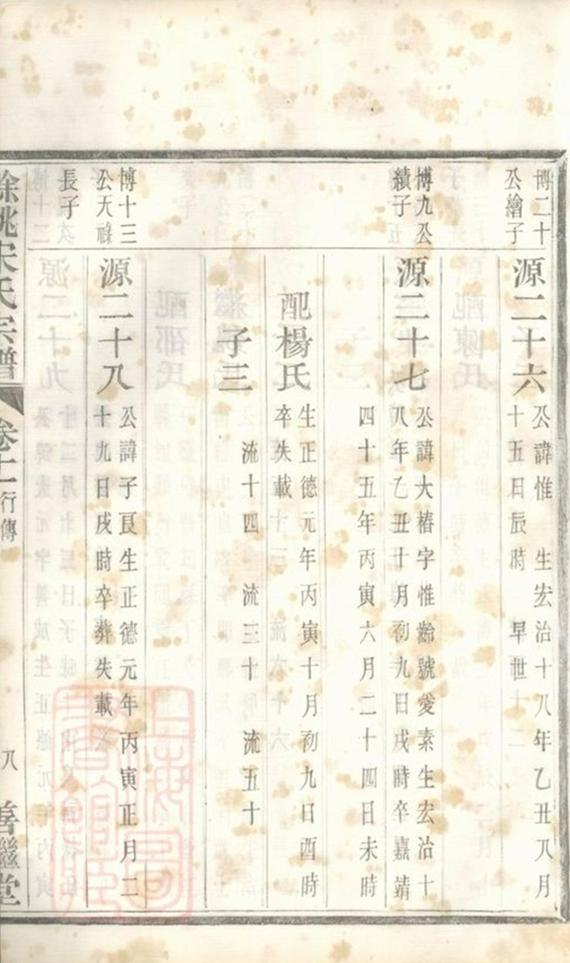 博二十
公繪子
源二十六
公諱惟　生宏治十八年乙丑八月
十五日辰時　早世
博九公
續子
源二十七
公諱大椿字惟齡號愛素生宏治十
八年乙丑十月初九日戌時卒嘉靖
四十五年丙寅六月二十四日未時
配楊氏
生正德元年丙寅十月初九日酉時
卒失載
子三
流十四　流三十　流五十
博十三
公天祿
長子
源二十八
公諱子良生正德元年丙寅正月二
十九日戌時卒葬失載
餘姚宋氏宗譜
行傳
八
善繼堂